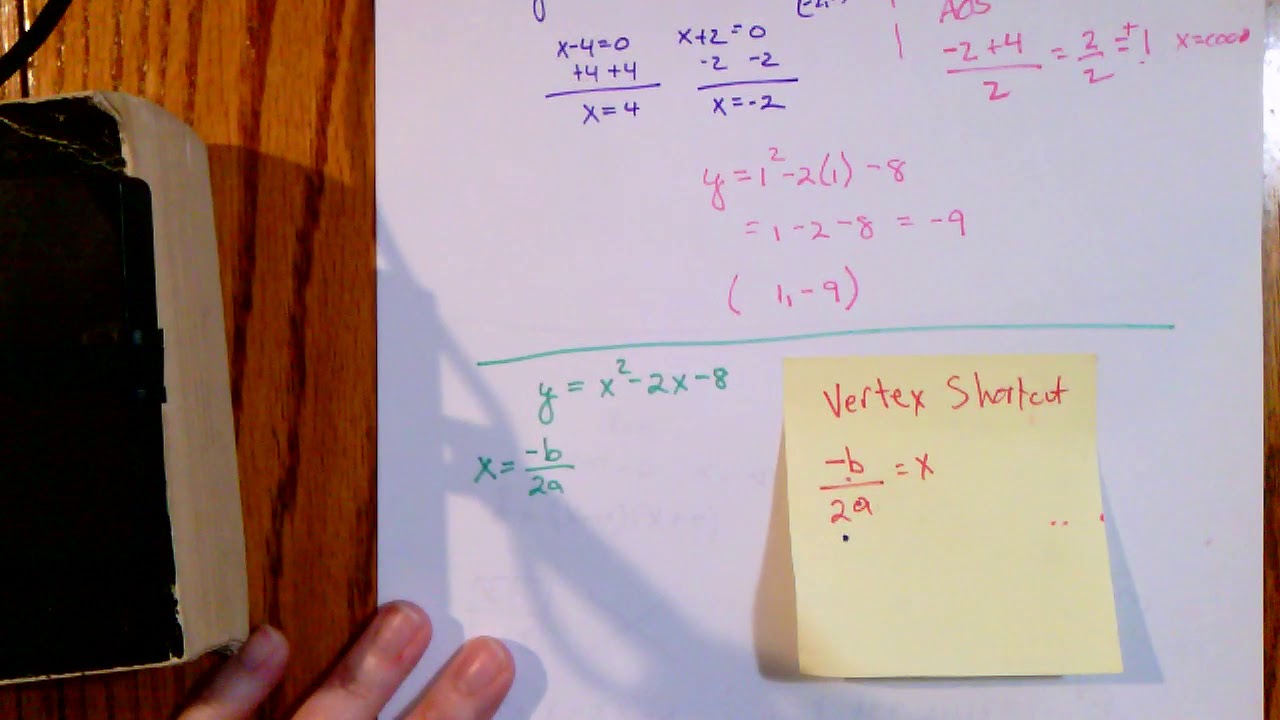 AOS
x-4=0 x+2=0
+4 +4 -2 -2
x=4 x=-2
-2+4/2 = 2/2 = 1
y=1²-2(1)-8
=1-2-8=-9
(1,-9)
y=x²-2x-8
x=-b/2a
Vertex Shortcut
-b/2a=x